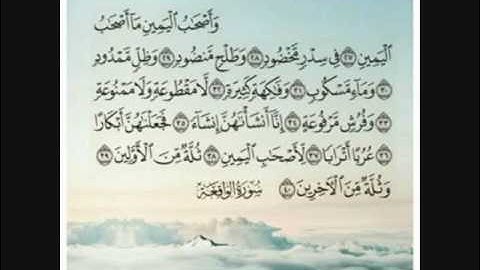 وَأَصْحَابُ الْيَمِينِ مَا أَصْحَابُ
الْيَمِينِ ۝٢٧ فِي سِدْرٍ مَّخْضُودٍ ۝٢٨ وَطَلْحٍ مَّنضُودٍ ۝٢٩ وَظِلٍّ مَّمْدُودٍ
۝٣٠ وَمَاءٍ مَّسْكُوبٍ ۝٣١ وَفَاكِهَةٍ كَثِيرَةٍ ۝٣٢ لَّا مَقْطُوعَةٍ وَلَا مَمْنُوعَةٍ
۝٣٣ وَفُرُشٍ مَّرْفُوعَةٍ ۝٣٤ إِنَّا أَنشَأْنَاهُنَّ إِنشَاءً ۝٣٥ فَجَعَلْنَاهُنَّ أَبْكَارًا
۝٣٦ عُرُبًا أَتْرَابًا ۝٣٧ لِّأَصْحَابِ الْيَمِينِ ۝٣٨ ثُلَّةٌ مِّنَ الْأَوَّلِينَ ۝٣٩
وَثُلَّةٌ مِّنَ الْآخِرِينَ ۝٤٠ سُورَةُ الوَاقِعَة